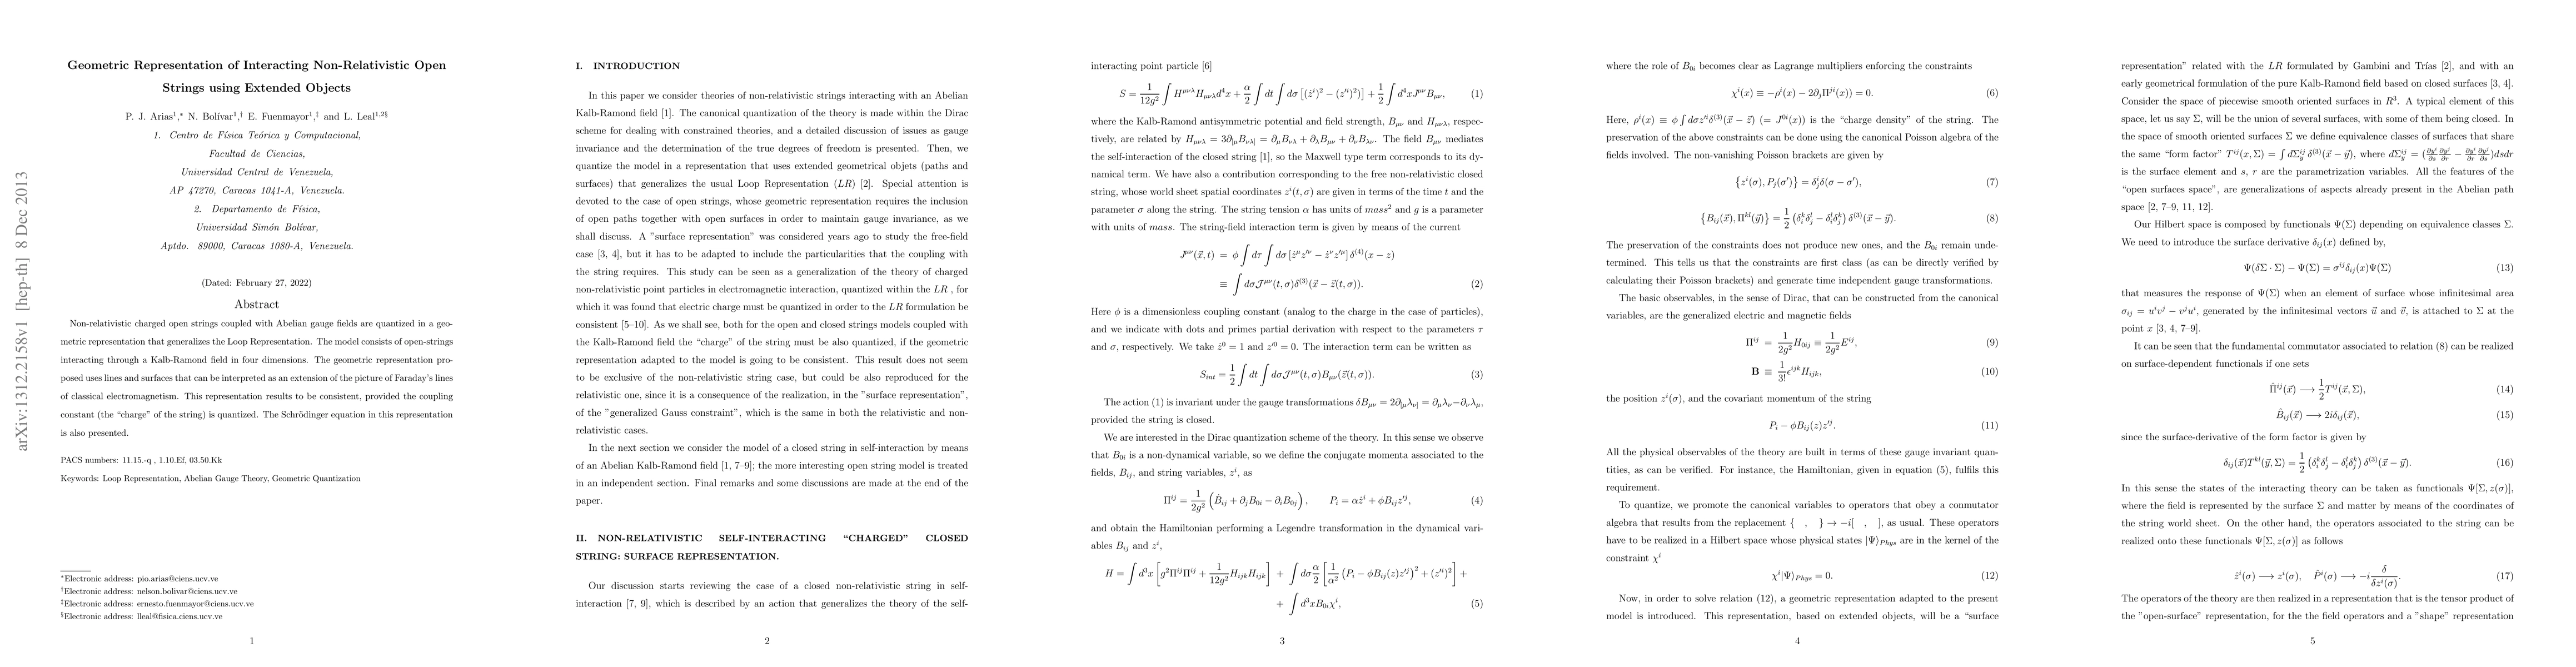 arXiv:1312.2158v1 [hep-th] 8 Dec 2013
Geometric Representation of Interacting Non-Relativistic Open
Strings using Extended Objects
P. J. Arias¹,* N. Bolívar¹,† E. Fuenmayor¹,‡ and L. Leal¹,²§
1. Centro de Física Teórica y Computacional,
Facultad de Ciencias,
Universidad Central de Venezuela,
AP 47270, Caracas 1041-A, Venezuela.
2. Departamento de Física,
Universidad Simón Bolívar,
Aptdo. 89000, Caracas 1080-A, Venezuela.
(Dated: February 27, 2022)
Abstract
Non-relativistic charged open strings coupled with Abelian gauge fields are quantized in a geo-
metric representation that generalizes the Loop Representation. The model consists of open-strings
interacting through a Kalb-Ramond field in four dimensions. The geometric representation pro-
posed uses lines and surfaces that can be interpreted as an extension of the picture of Faraday's lines
of classical electromagnetism. This representation results to be consistent, provided the coupling
constant (the “charge” of the string) is quantized. The Schrödinger equation in this representation
is also presented.
PACS numbers: 11.15.-q , 1.10.Ef, 03.50.Kk
Keywords: Loop Representation, Abelian Gauge Theory, Geometric Quantization
*Electronic address: pio.arias@ciens.ucv.ve
†Electronic address: nelson.bolivar@ciens.ucv.ve
‡Electronic address: ernesto.fuenmayor@ciens.ucv.ve
§Electronic address: lleal@fisica.ciens.ucv.ve
1
I. INTRODUCTION
In this paper we consider theories of non-relativistic strings interacting with an Abelian
Kalb-Ramond field [1]. The canonical quantization of the theory is made within the Dirac
scheme for dealing with constrained theories, and a detailed discussion of issues as gauge
invariance and the determination of the true degrees of freedom is presented. Then, we
quantize the model in a representation that uses extended geometrical objets (paths and
surfaces) that generalizes the usual Loop Representation (LR) [2]. Special attention is
devoted to the case of open strings, whose geometric representation requires the inclusion
of open paths together with open surfaces in order to maintain gauge invariance, as we
shall discuss. A ”surface representation” was considered years ago to study the free-field
case [3, 4], but it has to be adapted to include the particularities that the coupling with
the string requires. This study can be seen as a generalization of the theory of charged
non-relativistic point particles in electromagnetic interaction, quantized within the LR , for
which it was found that electric charge must be quantized in order to the LR formulation be
consistent [5–10]. As we shall see, both for the open and closed strings models coupled with
the Kalb-Ramond field the “charge” of the string must be also quantized, if the geometric
representation adapted to the model is going to be consistent. This result does not seem
to be exclusive of the non-relativistic string case, but could be also reproduced for the
relativistic one, since it is a consequence of the realization, in the ”surface representation”,
of the ”generalized Gauss constraint”, which is the same in both the relativistic and non-
relativistic cases.
In the next section we consider the model of a closed string in self-interaction by means
of an Abelian Kalb-Ramond field [1, 7–9]; the more interesting open string model is treated
in an independent section. Final remarks and some discussions are made at the end of the
paper.
II. NON-RELATIVISTIC SELF-INTERACTING “CHARGED” CLOSED
STRING: SURFACE REPRESENTATION.
Our discussion starts reviewing the case of a closed non-relativistic string in self-
interaction [7, 9], which is described by an action that generalizes the theory of the self-
2
interacting point particle [6]
S = 1/12g² ∫ H^{μνλ}H_{μνλ}d⁴x + α/2 ∫ dt ∫ dσ [(ż^i)² − (z′^i)²)] + 1/2 ∫ d⁴xJ^{μν}B_{μν}, (1)
where the Kalb-Ramond antisymmetric potential and field strength, B_{μν} and H_{μνλ}, respec-
tively, are related by H_{μνλ} = 3∂_{[μ}B_{νλ]} = ∂_μB_{νλ} + ∂_λB_{μν} + ∂_νB_{λμ}. The field B_{μν} mediates
the self-interaction of the closed string [1], so the Maxwell type term corresponds to its dy-
namical term. We have also a contribution corresponding to the free non-relativistic closed
string, whose world sheet spatial coordinates z^i(t, σ) are given in terms of the time t and the
parameter σ along the string. The string tension α has units of mass² and g is a parameter
with units of mass. The string-field interaction term is given by means of the current
J^{μν}(x⃗, t) = ϕ ∫ dτ ∫ dσ [ż^μz′^ν − ż^νz′^μ] δ^{(4)}(x − z)
≡ ∫ dσ𝒥^{μν}(t, σ)δ^{(3)}(x⃗ − z⃗(t, σ)). (2)
Here ϕ is a dimensionless coupling constant (analog to the charge in the case of particles),
and we indicate with dots and primes partial derivation with respect to the parameters τ
and σ, respectively. We take ż⁰ = 1 and z′⁰ = 0. The interaction term can be written as
S_{int} = 1/2 ∫ dt ∫ dσ𝒥^{μν}(t, σ)B_{μν}(z⃗(t, σ)). (3)
The action (1) is invariant under the gauge transformations δB_{μν} = 2∂_{[μ}λ_{ν]} = ∂_μλ_ν−∂_νλ_μ,
provided the string is closed.
We are interested in the Dirac quantization scheme of the theory. In this sense we observe
that B_{0i} is a non-dynamical variable, so we define the conjugate momenta associated to the
fields, B_{ij}, and string variables, z^i, as
Π^{ij} = 1/2g² (Ḃ_{ij} + ∂_jB_{0i} − ∂_iB_{0j}), P_i = αż^i + ϕB_{ij}z′^j, (4)
and obtain the Hamiltonian performing a Legendre transformation in the dynamical vari-
ables B_{ij} and z^i,
H = ∫ d³x [g²Π^{ij}Π^{ij} + 1/12g² H_{ijk}H_{ijk}] + ∫ dσ α/2 [1/α² (P_i − ϕB_{ij}(z)z′^j)² + (z′^i)²] +
+ ∫ d³xB_{0i}χ^i, (5)
3
where the role of B_{0i} becomes clear as Lagrange multipliers enforcing the constraints
χ^i(x) ≡ −ρ^i(x) − 2∂_jΠ^{ji}(x)) = 0. (6)
Here, ρ^i(x) ≡ ϕ ∫ dσz′^iδ^{(3)}(x⃗ − z⃗) (= J^{0i}(x)) is the “charge density” of the string. The
preservation of the above constraints can be done using the canonical Poisson algebra of the
fields involved. The non-vanishing Poisson brackets are given by
{z^i(σ), P_j(σ′)} = δ^i_jδ(σ − σ′), (7)
{B_{ij}(x⃗), Π^{kl}(y⃗)} = 1/2 (δ^k_iδ^l_j − δ^l_iδ^k_j) δ^{(3)}(x⃗ − y⃗). (8)
The preservation of the constraints does not produce new ones, and the B_{0i} remain unde-
termined. This tells us that the constraints are first class (as can be directly verified by
calculating their Poisson brackets) and generate time independent gauge transformations.
The basic observables, in the sense of Dirac, that can be constructed from the canonical
variables, are the generalized electric and magnetic fields
Π^{ij} = 1/2g² H_{0ij} ≡ 1/2g² E^{ij}, (9)
B ≡ 1/3! ϵ^{ijk}H_{ijk}, (10)
the position z^i(σ), and the covariant momentum of the string
P_i − ϕB_{ij}(z)z′^j. (11)
All the physical observables of the theory are built in terms of these gauge invariant quan-
tities, as can be verified. For instance, the Hamiltonian, given in equation (5), fulfils this
requirement.
To quantize, we promote the canonical variables to operators that obey a conmutator
algebra that results from the replacement { , } → −i[ , ], as usual. These operators
have to be realized in a Hilbert space whose physical states |Ψ⟩_{Phys} are in the kernel of the
constraint χ^i
χ^i|Ψ⟩_{Phys} = 0. (12)
Now, in order to solve relation (12), a geometric representation adapted to the present
model is introduced. This representation, based on extended objects, will be a “surface
4
representation” related with the LR formulated by Gambini and Trías [2], and with an
early geometrical formulation of the pure Kalb-Ramond field based on closed surfaces [3, 4].
Consider the space of piecewise smooth oriented surfaces in R³. A typical element of this
space, let us say Σ, will be the union of several surfaces, with some of them being closed. In
the space of smooth oriented surfaces Σ we define equivalence classes of surfaces that share
the same “form factor” T^{ij}(x, Σ) = ∫ dΣ^{ij}_y δ^{(3)}(x⃗ − y⃗), where dΣ^{ij}_y = (∂y^i/∂s ∂y^j/∂r − ∂y^i/∂r ∂y^j/∂s)dsdr
is the surface element and s, r are the parametrization variables. All the features of the
“open surfaces space”, are generalizations of aspects already present in the Abelian path
space [2, 7–9, 11, 12].
Our Hilbert space is composed by functionals Ψ(Σ) depending on equivalence classes Σ.
We need to introduce the surface derivative δ_{ij}(x) defined by,
Ψ(δΣ · Σ) − Ψ(Σ) = σ^{ij}δ_{ij}(x)Ψ(Σ) (13)
that measures the response of Ψ(Σ) when an element of surface whose infinitesimal area
σ_{ij} = u^iv^j − v^ju^i, generated by the infinitesimal vectors u⃗ and v⃗, is attached to Σ at the
point x [3, 4, 7–9].
It can be seen that the fundamental commutator associated to relation (8) can be realized
on surface-dependent functionals if one sets
Π̂^{ij}(x⃗) ⟶ 1/2 T^{ij}(x⃗, Σ), (14)
B̂_{ij}(x⃗) ⟶ 2iδ_{ij}(x⃗), (15)
since the surface-derivative of the form factor is given by
δ_{ij}(x⃗)T^{kl}(y⃗, Σ) = 1/2 (δ^k_iδ^l_j − δ^l_iδ^k_j) δ^{(3)}(x⃗ − y⃗). (16)
In this sense the states of the interacting theory can be taken as functionals Ψ[Σ, z(σ)],
where the field is represented by the surface Σ and matter by means of the coordinates of
the string world sheet. On the other hand, the operators associated to the string can be
realized onto these functionals Ψ[Σ, z(σ)] as follows
ẑ^i(σ) ⟶ z^i(σ), P̂^i(σ) ⟶ −i δ/δz^i(σ). (17)
The operators of the theory are then realized in a representation that is the tensor product of
the ”open-surface” representation, for the the field operators and a ”shape” representation
5